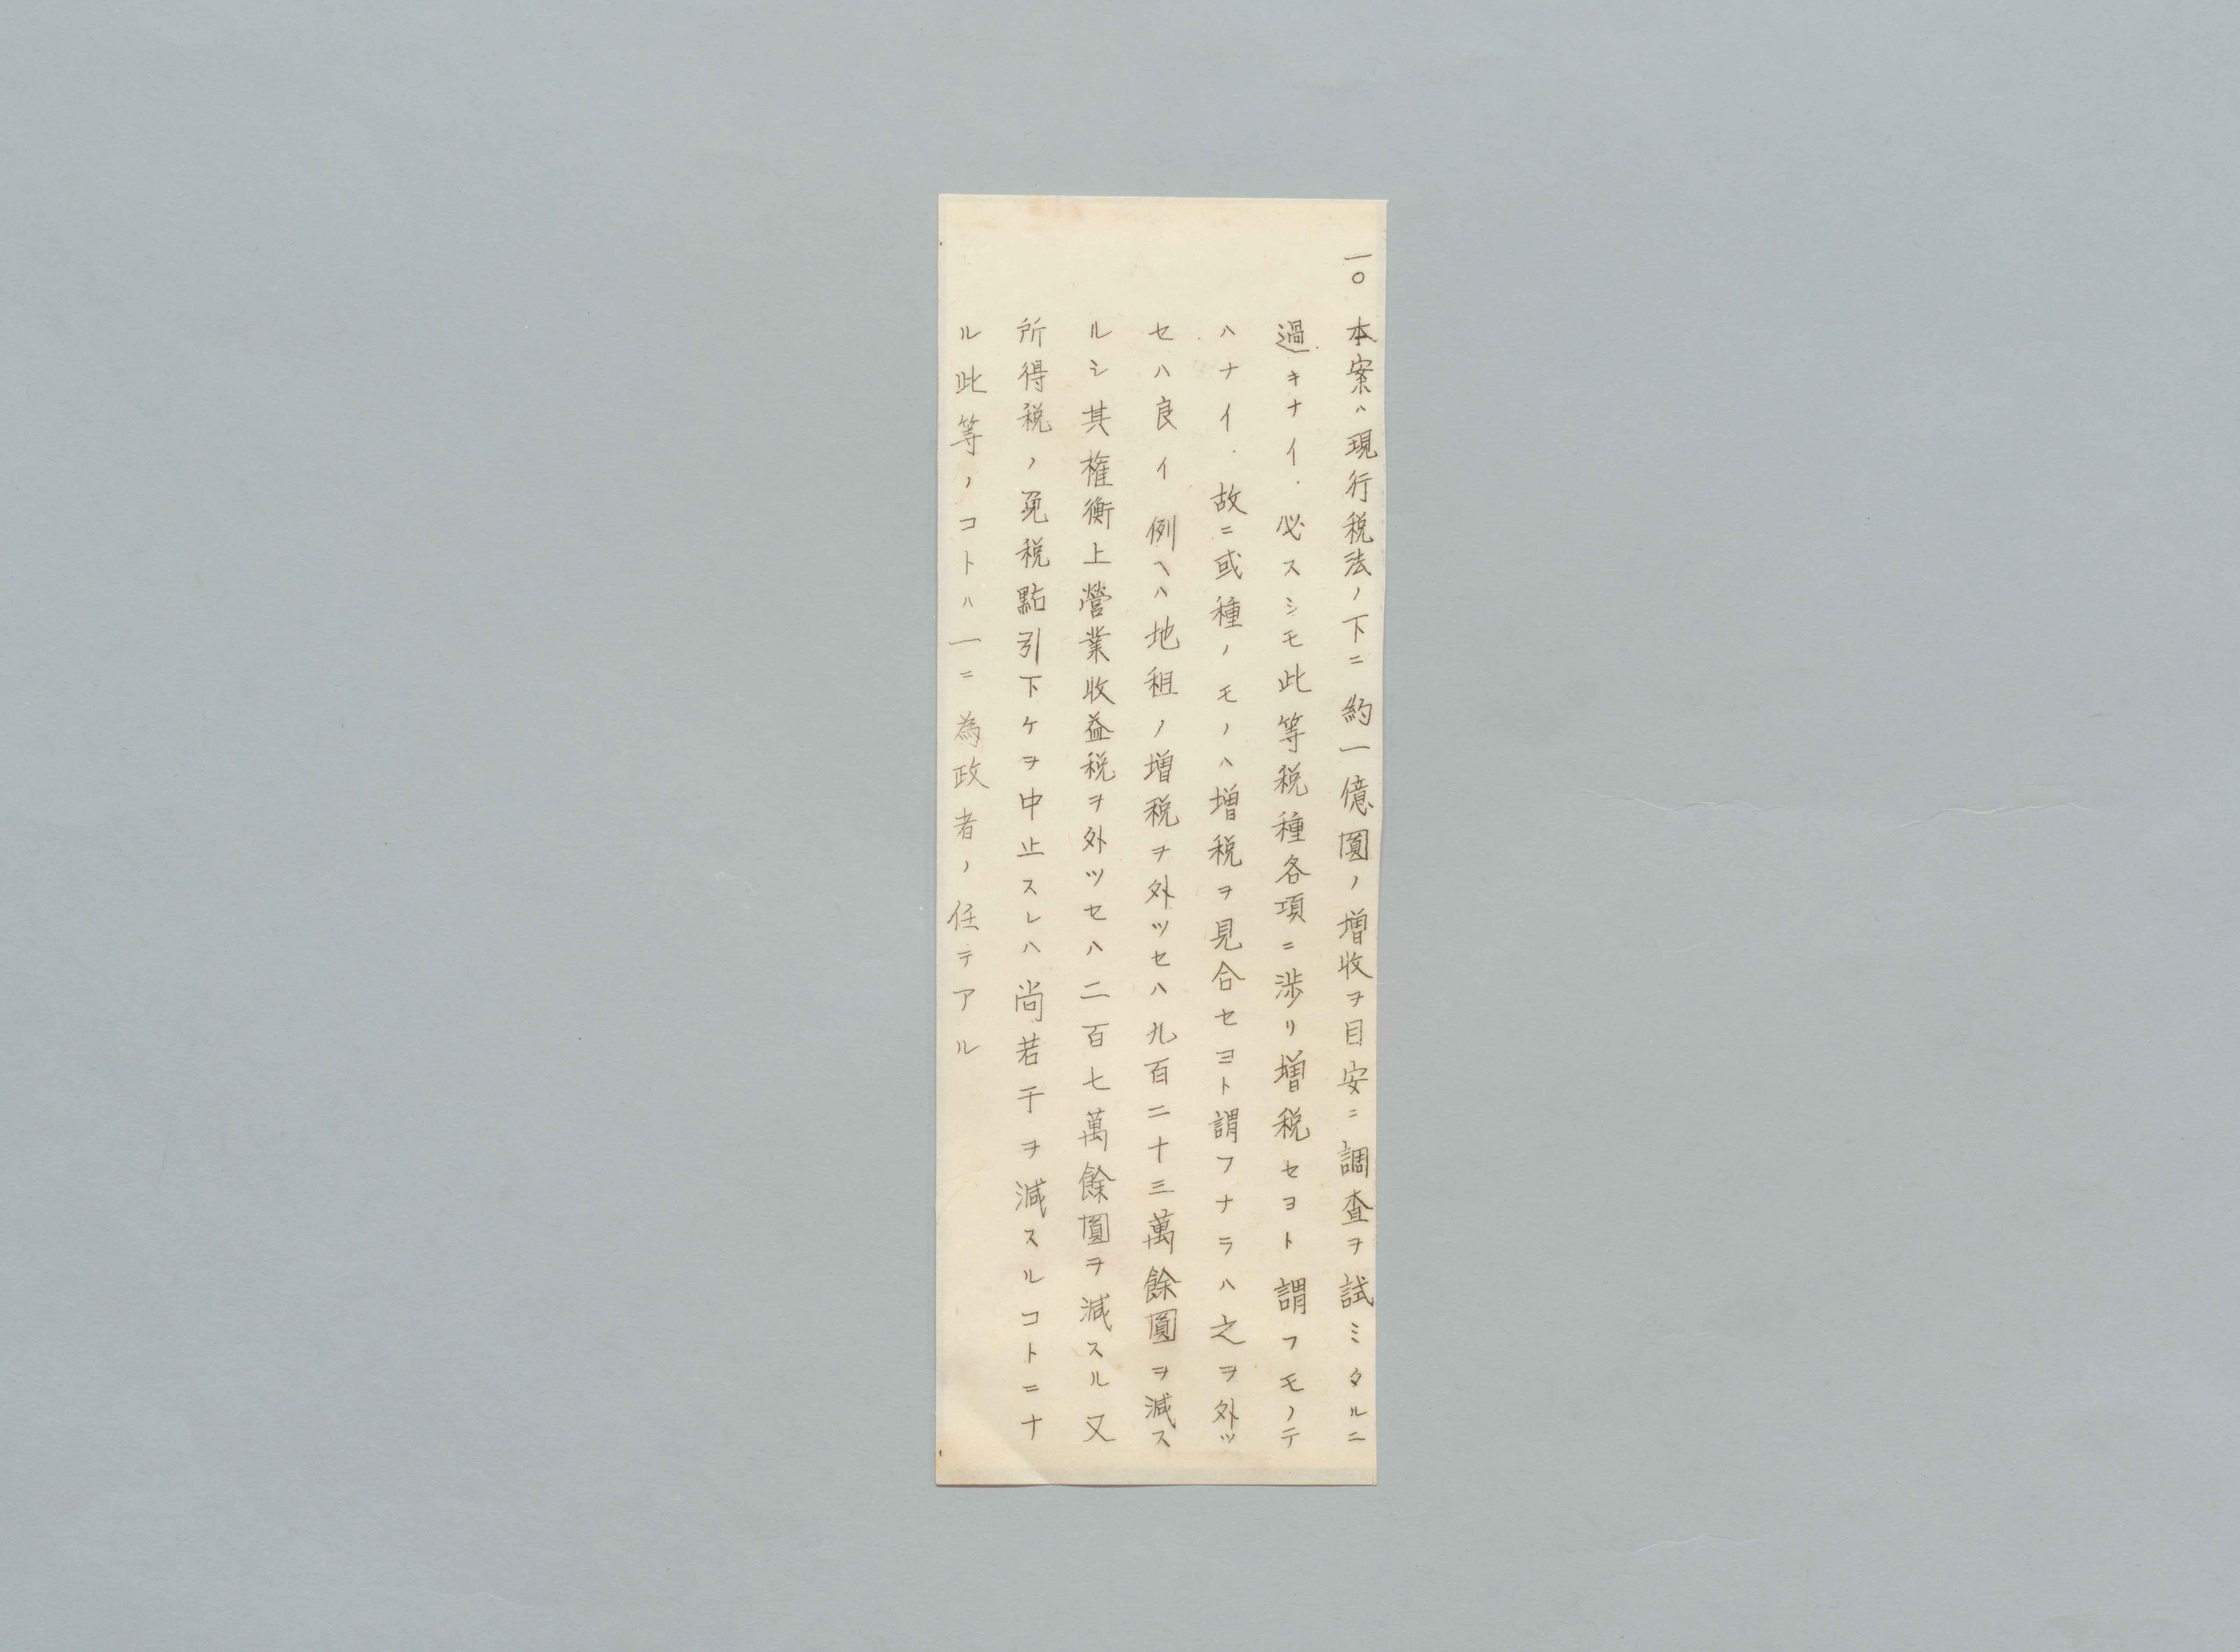 一〇 本案ハ現行税法ノ下ニ約一億圓ノ増收ヲ目安ニ調査ヲ試ミタルニ
過キナイ.必スシモ此等税種各項ニ渉リ増税セヨト謂フモノテ
ハナイ.故ニ或種ノモノハ増税ヲ見合セヨト謂フナラハ之ヲ外ツ
セハ良イ例ヘハ地租ノ増税ヲ外ツセハ九百二十三萬餘圓ヲ減ス
ルシ其権衡上營業收益税ヲ外ツセハ二百七萬餘圓ヲ減スル又
所得税ノ免税點引下ケヲ中止スレハ尚若干ヲ減スルコトニナ
ル此等ノコトハ一ニ為政者ノ任テアル